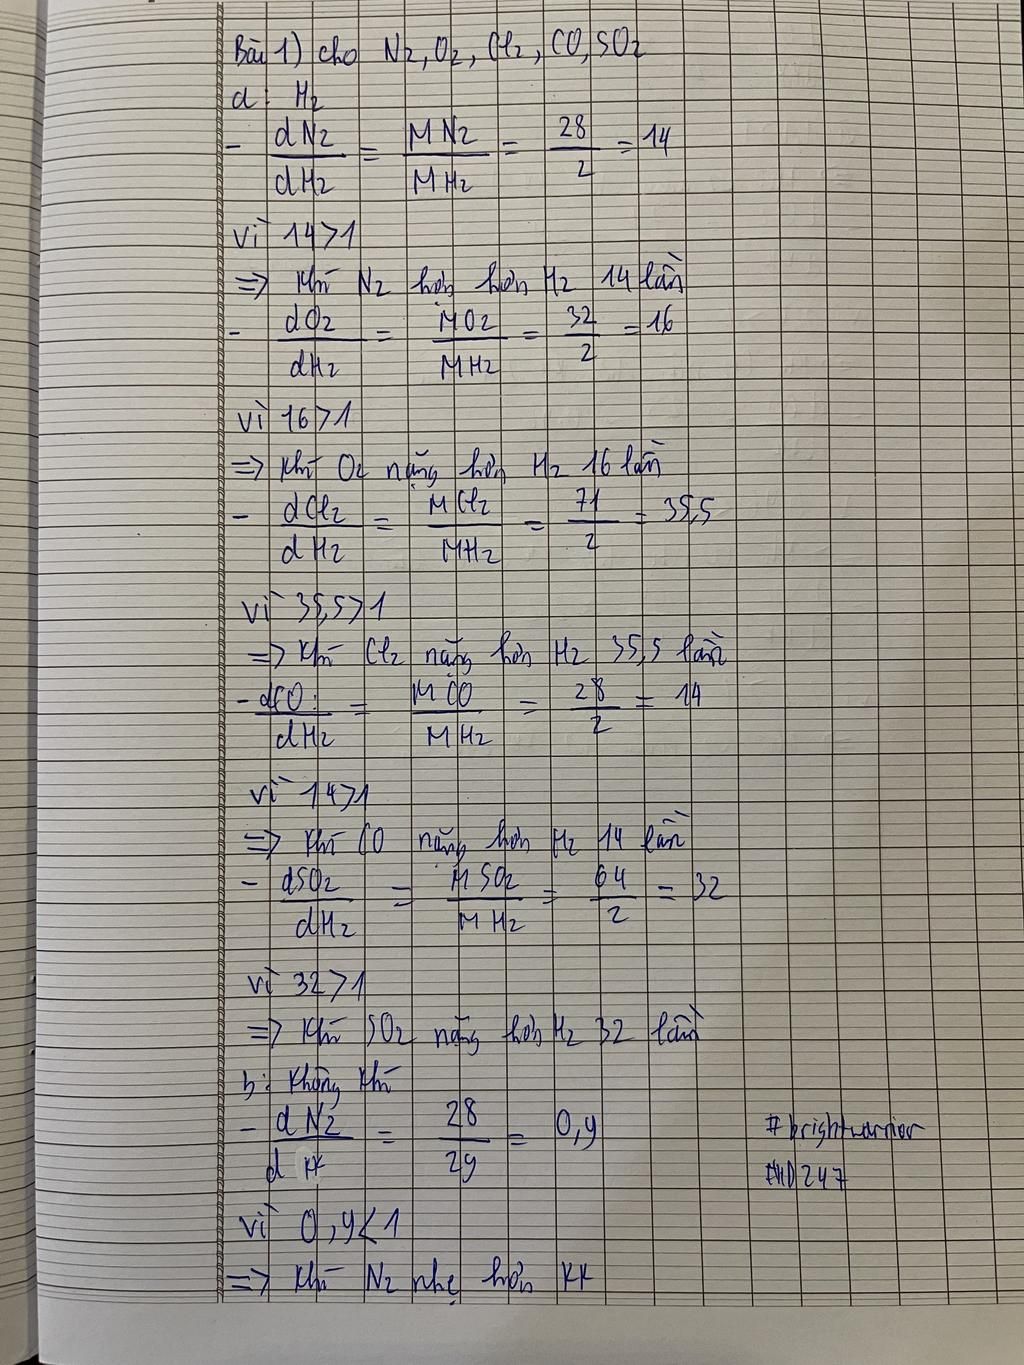 Bài 1) cho N2, O2, Cl2, CO, SO2
a: H2
- dN2/dH2 = MN2/MH2 = 28/2 = 14
vì 14>1
=> Khí N2 hơn hơn H2 14 lần
- dO2/dH2 = MO2/MH2 = 32/2 = 16
vì 16>1
=> Khí O2 nặng hơn H2 16 lần
- dCl2/dH2 = MCl2/MH2 = 71/2 = 35,5
vì 35,5>1
=> Khí Cl2 nặng hơn H2 35,5 lần
- dCO/dH2 = MCO/MH2 = 28/2 = 14
vì 14>1
=> Khí CO nặng hơn H2 14 lần
- dSO2/dH2 = MSO2/MH2 = 64/2 = 32
vì 32>1
=> Khí SO2 nặng hơn H2 32 lần
b: Không khí
- dN2/dKK = 28/29 = 0,9
#brightwarrior
#HD247
vì 0,9<1
=> Khí N2 nhẹ hơn KK